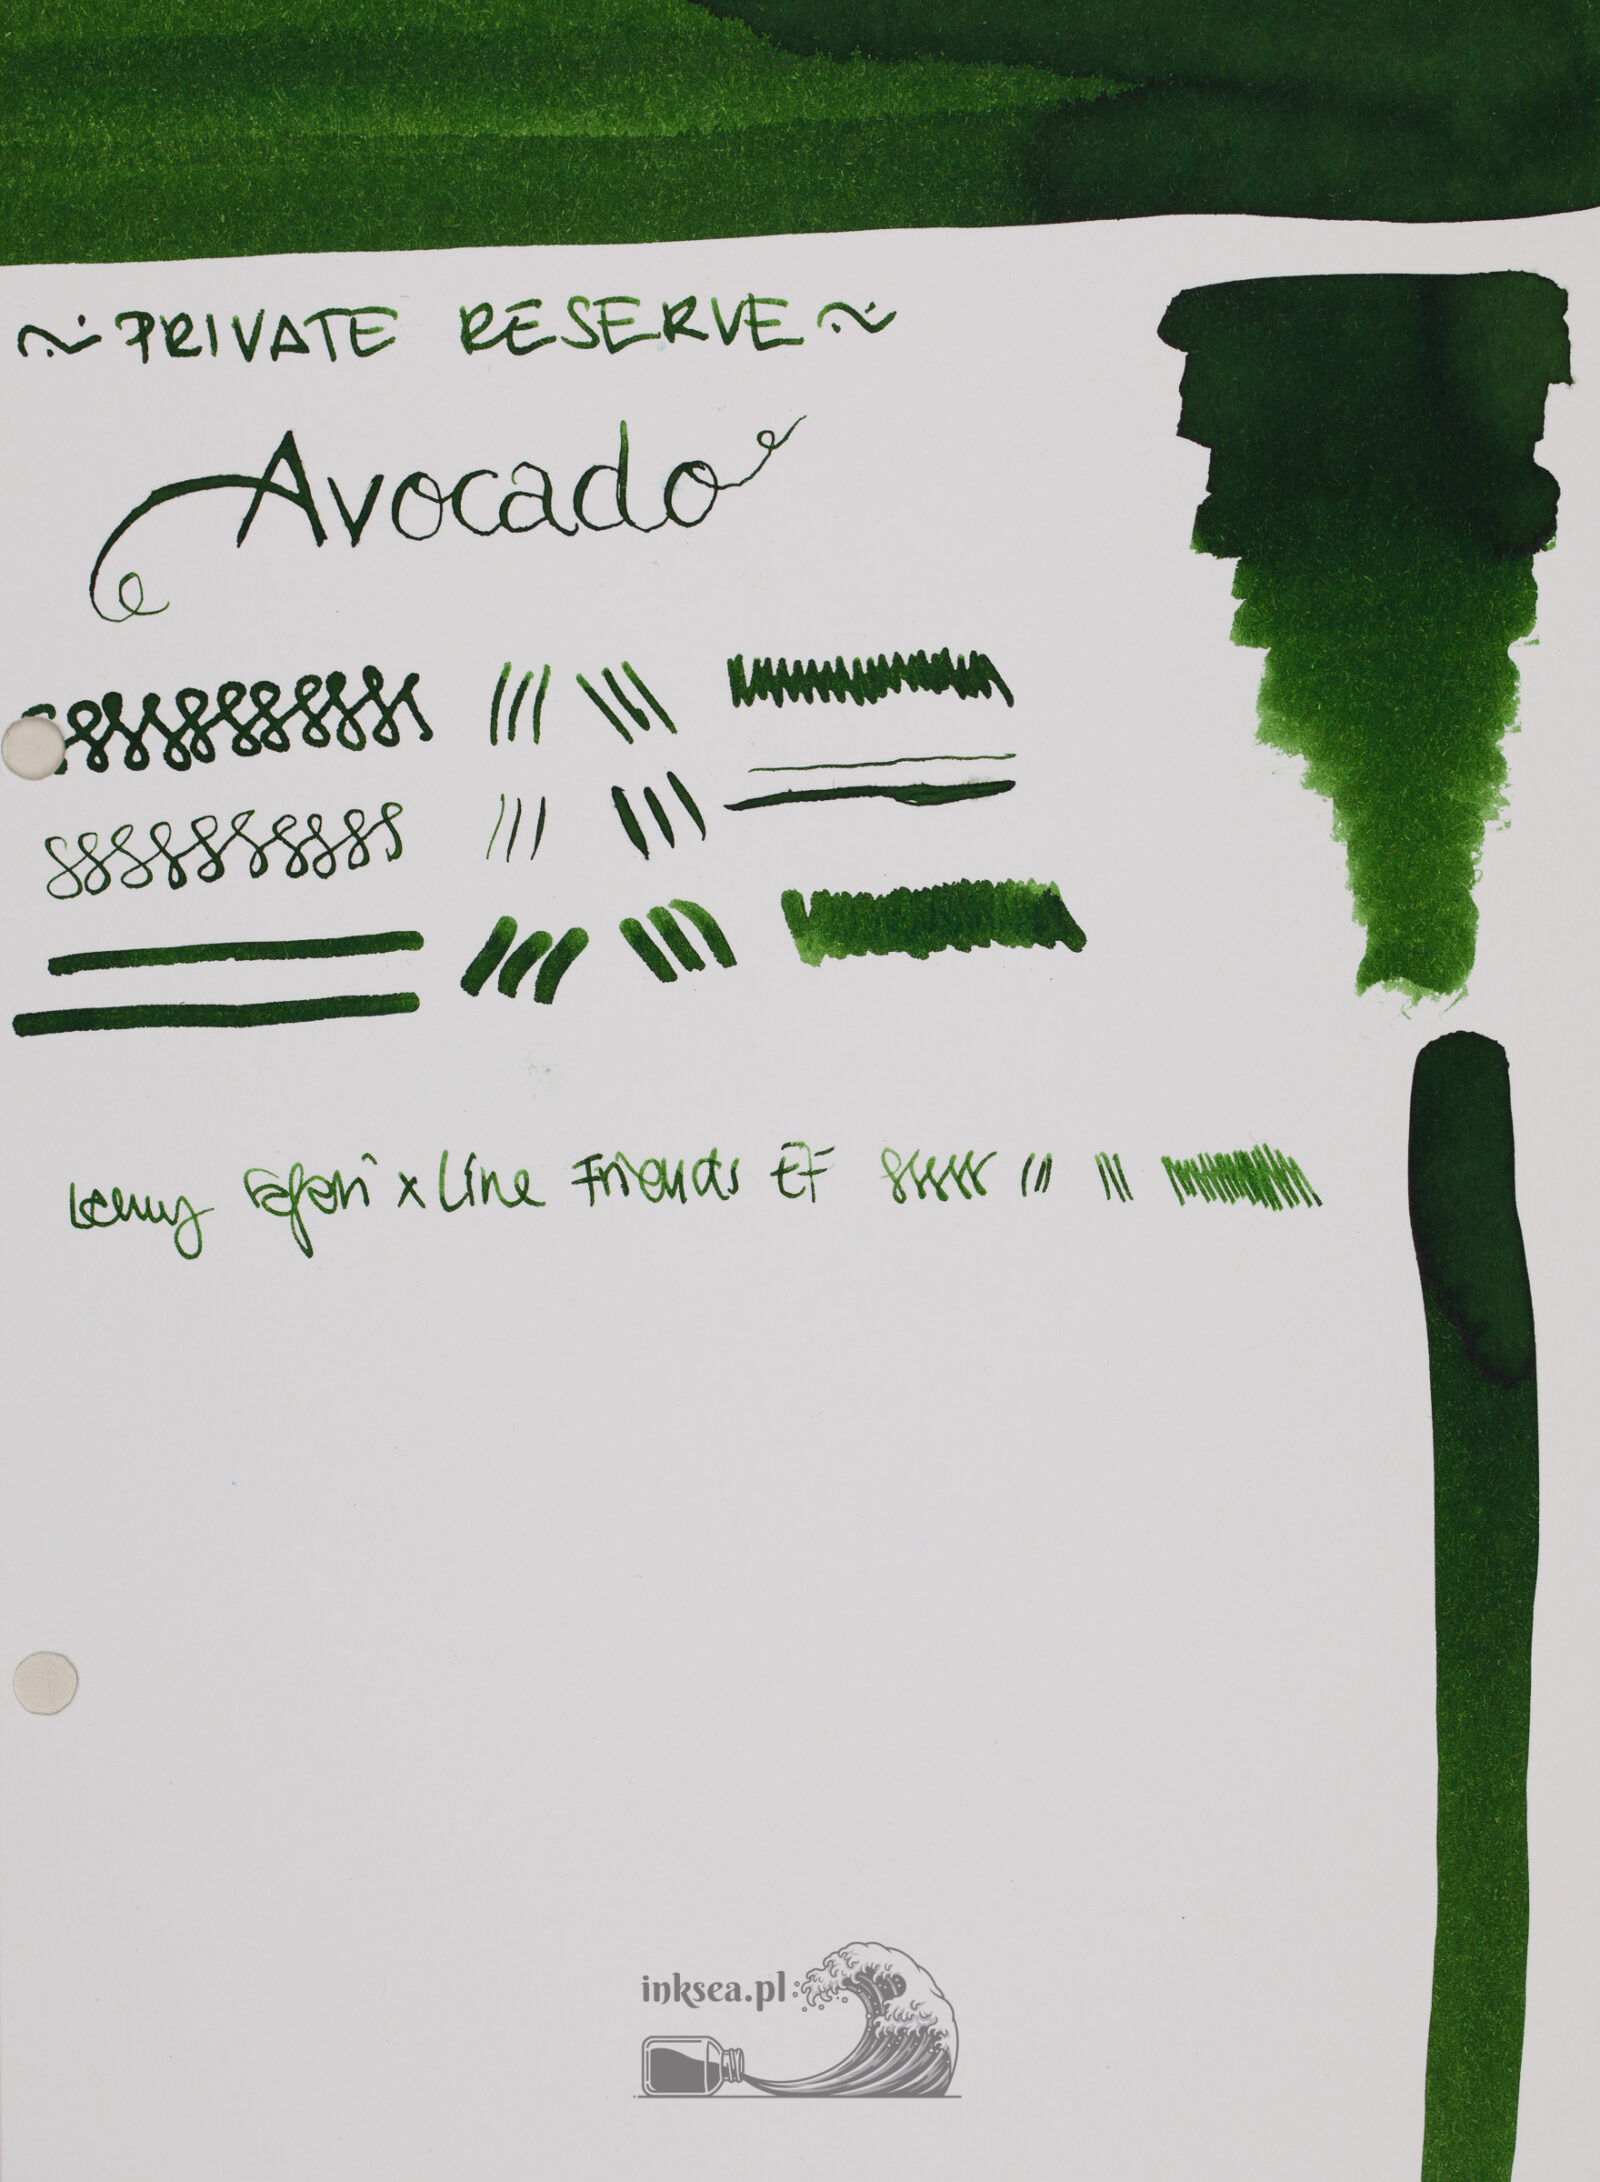 ~ PRIVATE RESERVE ~
Avocado
Lamy Safari x Line Friends EF
inksea.pl